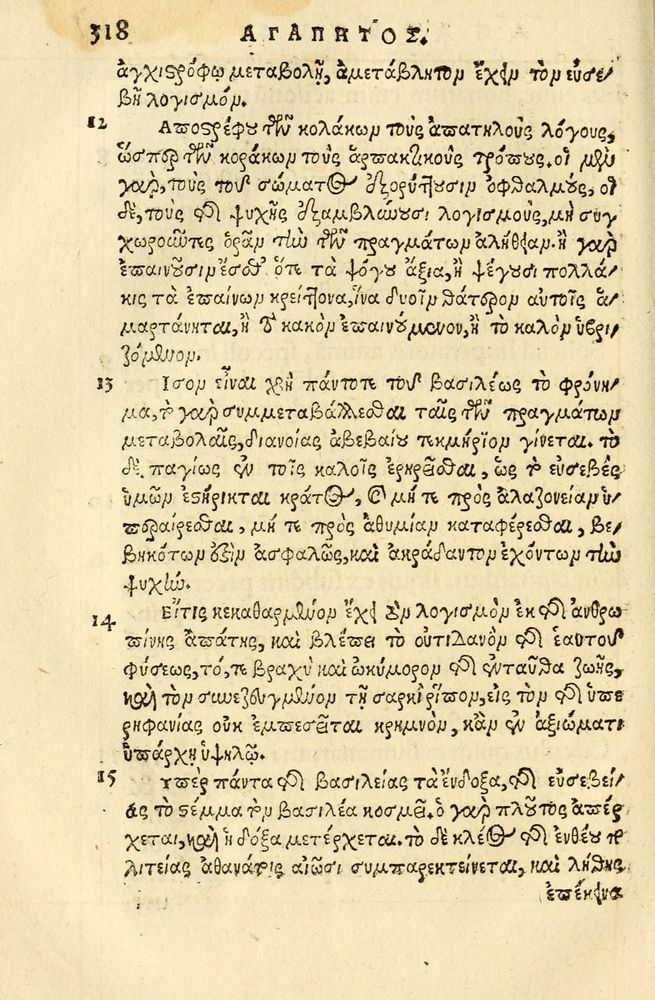 318 ΑΓΑΠΗΤΟΣ.
ἀγχιστρόφῳ μεταβολῇ, ἀμετάβλητον ἔχειν τὸν εὐσε-
βῆ λογισμόν.
12 Αποστρέφου τῶν κολάκων τοὺς ἀπατηλοὺς λόγους,
ὥσπερ τῶν κοράκων τοὺς ἁρπακτικοὺς τρόπους. οἱ μὲν
γὰρ, τοὺς τοῦ σώματος ἐξορύττουσιν ὀφθαλμούς, οἱ
δὲ, τοὺς τῆς ψυχῆς ἐξαμβλύνουσι λογισμοὺς, μὴ συγ
χωροῦντες ὁρᾶν τὴν τῶν πραγμάτων ἀλήθειαν. ἢ γὰρ
ἐπαινοῦσιν ἔσθ' ὅτε τὰ ψόγου ἄξια, ἢ ψέγουσι πολλά-
κις τὰ ἐπαίνων κρείττονα, ἵνα δυοῖν θάτερον αὐτοῖς ἁ-
μαρτάνηται, ἢ τὸ κακὸν ἐπαινούμενον, ἢ τὸ καλὸν ὑβρι-
ζόμενον.
13 Ισον εἶναι χρὴ πάντοτε τοῦ βασιλέως τὸ φρόνη-
μα, τὸ γὰρ συμμεταβάλλεσθαι ταῖς τῶν πραγμάτων
μεταβολαῖς, διανοίας ἀβεβαίου τεκμήριον γίνεται. τὸ
δὲ παγίως ἐν τοῖς καλοῖς ἐρηρεῖσθαι, ὡς τὸ εὐσεβὲς
ὑμῶν ἐστήρικται κράτος, καὶ μή τε πρὸς ἀλαζονείαν ὑ-
περαίρεσθαι, μή τε πρὸς ἀθυμίαν καταφέρεσθαι, βε-
βηκότων ἐστὶν ἀσφαλῶς, καὶ ἀκράδαντον ἐχόντων τὴν
ψυχήν.
14 Εἴτις κεκαθαρμένον ἔχει τὸν λογισμὸν ἐκ τῆς ἀνθρω
πίνης ἀπάτης, καὶ βλέπει τὸ οὐτιδανὸν τῆς ἑαυτοῦ
φύσεως, τό, τε βραχὺ καὶ ὠκύμορον τῆς ἐνταῦθα ζωῆς,
καὶ τὸν συνεζευγμένον τῇ σαρκὶ ῥύπον, εἰς τὸν τῆς ὑπε
ρηφανίας οὐκ ἐμπεσεῖται κρημνὸν, κἂν ἐν ἀξιώματι
ὑπάρχῃ ὑψηλῷ.
15 Υπὲρ πάντα τῆς βασιλείας τὰ ἔνδοξα, τῆς εὐσεβεί-
ας τὸ στέμμα τὸν βασιλέα κοσμεῖ. ὁ γὰρ πλοῦτος ἀπέρ
χεται, καὶ ἡ δόξα μετέρχεται. τὸ δὲ κλέος τῆς ἐνθέου πο
λιτείας ἀθανάτοις αἰῶσι συμπαρεκτείνεται, καὶ λήθης
ἐπέκεινα